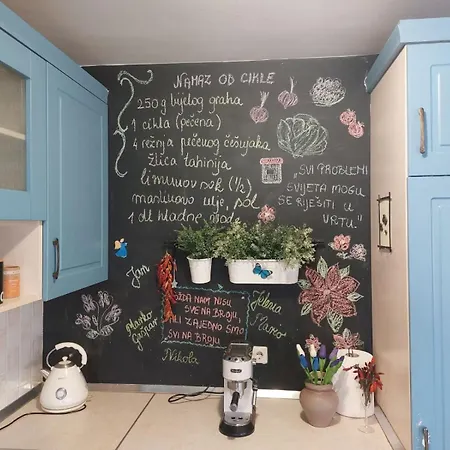 NAMAZ OD CIKLE
250 g bijelog graha
1 cikla (pečena)
4 režnja pečenog češnjaka
žlica tahinija
limunov sok (½)
maslinovo ulje, sol
1 dl hladne vode
SVI PROBLEMI
SVIJETA MOGU
SE RIJEŠITI U
VRTU.
Jan
Marko
Gašpar
Nikola
MOŽDA NAM NISU
SVE NA BROJU,
ALI ZAJEDNO SMO
SVI NA BROJU
Jelena
Marko